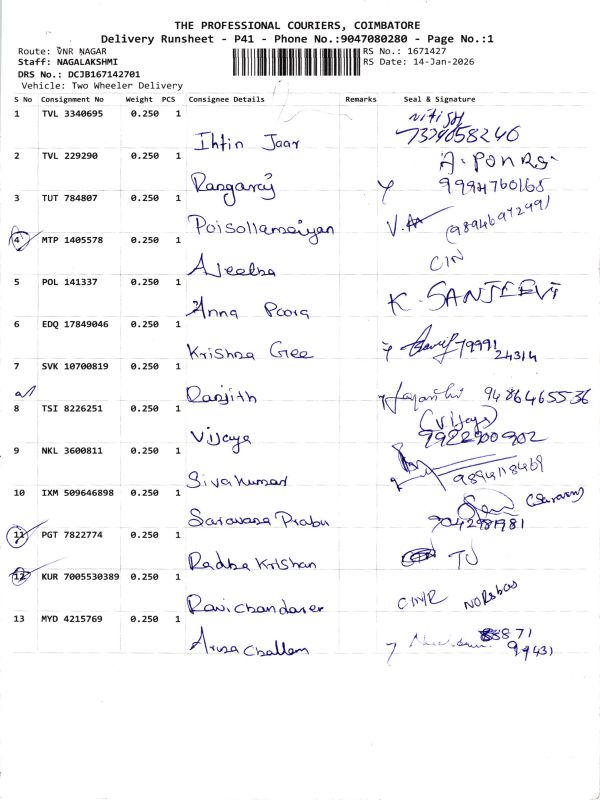 THE PROFESSIONAL COURIERS, COIMBATORE
Delivery Runsheet - P41 - Phone No.:9047080280 - Page No.:1
Route: VNR NAGAR
RS No.: 1671427
Staff: NAGALAKSHMI
RS Date: 14-Jan-2026
DRS No.: DCJB167142701
Vehicle: Two Wheeler Delivery
S No Consignment No Weight PCS Consignee Details Remarks Seal & Signature
1 TVL 3340695 0.250 1 Nitish
Ihtin Jaar
2 TVL 229290 0.250 1
Rangaraj
3 TUT 784807 0.250 1 9994760165
Poisollameiyan V.
4 MTP 1405578 0.250 1
Ajeelba CIN
5 POL 141337 0.250 1
Anna Poora K. SANJEEVI
6 EDQ 17849046 0.250 1
Krishna Gree 79991 24314
7 SVK 10700819 0.250 1
Ranjith Jayanthi 9486465536
8 TSI 8226251 0.250 1 (Vijaya)
Vijaya 9922900902
9 NKL 3600811 0.250 1
Sivakumar 9894118469
10 IXM 509646898 0.250 1 (Saravan)
Saravana Prabu 9042981981
11 PGT 7822774 0.250 1
Radha Krishan TJ
12 KUR 7005530389 0.250 1
Ravichandarer
13 MYD 4215769 0.250 1
Aruna Challam 99431